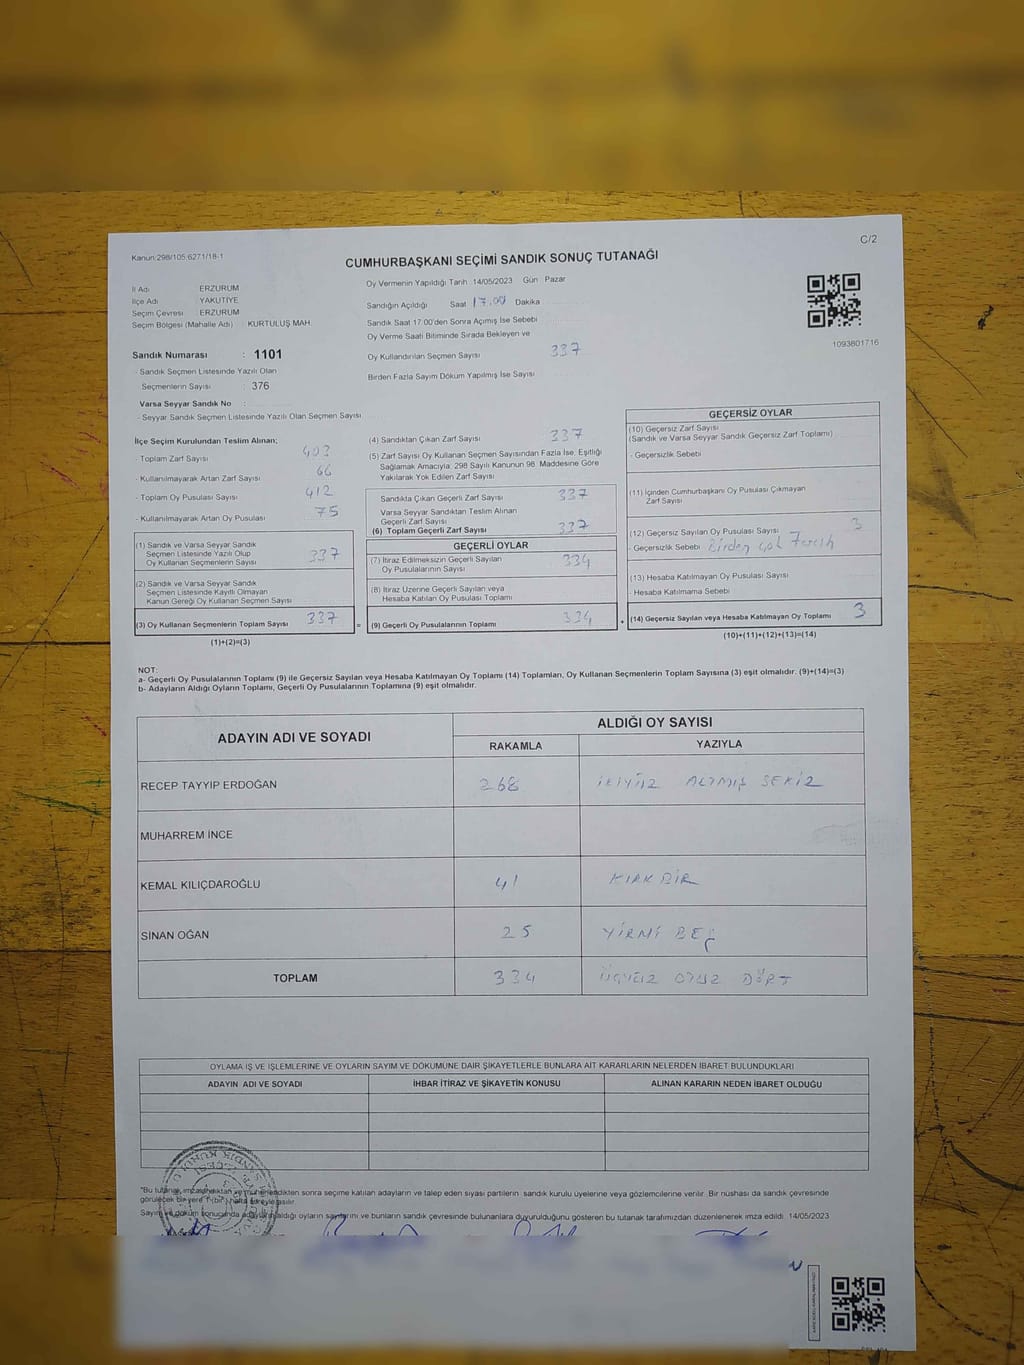 Kanun:298/105;6271/18-1
C/2
CUMHURBAŞKANI SEÇİMİ SANDIK SONUÇ TUTANAĞI
İl Adı : ERZURUM
İlçe Adı : YAKUTİYE
Seçim Çevresi : ERZURUM
Seçim Bölgesi (Mahalle Adı) : KURTULUŞ MAH.
Sandık Numarası : 1101
- Sandık Seçmen Listesinde Yazılı Olan
Seçmenlerin Sayısı : 376
Varsa Seyyar Sandık No :
- Seyyar Sandık Seçmen Listesinde Yazılı Olan Seçmen Sayısı
Oy Vermenin Yapıldığı Tarih 14/05/2023 Gün Pazar
Sandığın Açıldığı Saat 17.00 Dakika
Sandık Saat 17:00'den Sonra Açımış İse Sebebi
Oy Verme Saati Bitiminde Sırada Bekleyen ve
Oy Kullandırılan Seçmen Sayısı 337
Birden Fazla Sayım Döküm Yapılmış İse Sayısı
1093801716
İlçe Seçim Kurulundan Teslim Alınan;
- Toplam Zarf Sayısı 403
- Kullanılmayarak Artan Zarf Sayısı 66
- Toplam Oy Pusulası Sayısı 412
- Kullanılmayarak Artan Oy Pusulası 75
(1) Sandık ve Varsa Seyyar Sandık
Seçmen Listesinde Yazılı Olup
Oy Kullanan Seçmenlerin Sayısı 337
(2) Sandık ve Varsa Seyyar Sandık
Seçmen Listesinde Kayıtlı Olmayan
Kanun Gereği Oy Kullanan Seçmen Sayısı
(3) Oy Kullanan Seçmenlerin Toplam Sayısı 337
(1)+(2)=(3)
=
(4) Sandıktan Çıkan Zarf Sayısı 337
(5) Zarf Sayısı Oy Kullanan Seçmen Sayısından Fazla İse, Eşitliği
Sağlamak Amacıyla; 298 Sayılı Kanunun 98. Maddesine Göre
Yakılarak Yok Edilen Zarf Sayısı
Sandıkta Çıkan Geçerli Zarf Sayısı 337
Varsa Seyyar Sandıktan Teslim Alınan
Geçerli Zarf Sayısı
(6) Toplam Geçerli Zarf Sayısı 337
GEÇERLİ OYLAR
(7) İtiraz Edilmeksizin Geçerli Sayılan
Oy Pusulalarının Sayısı 334
(8) İtiraz Üzerine Geçerli Sayılan veya
Hesaba Katılan Oy Pusulası Toplamı
(9) Geçerli Oy Pusulalarının Toplamı 334
+
GEÇERSİZ OYLAR
(10) Geçersiz Zarf Sayısı
(Sandık ve Varsa Seyyar Sandık Geçersiz Zarf Toplamı)
- Geçersizlik Sebebi
(11) İçinden Cumhurbaşkanı Oy Pusulası Çıkmayan
Zarf Sayısı
(12) Geçersiz Sayılan Oy Pusulası Sayısı 3
- Geçersizlik Sebebi Birden çok Tercih
(13) Hesaba Katılmayan Oy Pusulası Sayısı
- Hesaba Katılmama Sebebi
(14) Geçersiz Sayılan veya Hesaba Katılmayan Oy Toplamı 3
(10)+(11)+(12)+(13)=(14)
NOT:
a- Geçerli Oy Pusulalarının Toplamı (9) ile Geçersiz Sayılan veya Hesaba Katılmayan Oy Toplamı (14) Toplamları, Oy Kullanan Seçmenlerin Toplam Sayısına (3) eşit olmalıdır. (9)+(14)=(3)
b- Adayların Aldığı Oyların Toplamı, Geçerli Oy Pusulalarının Toplamına (9) eşit olmalıdır.
ADAYIN ADI VE SOYADI
ALDIĞI OY SAYISI
RAKAMLA YAZIYLA
RECEP TAYYIP ERDOĞAN 268 İKİYÜZ ALTMIŞ SEKİZ
MUHARREM İNCE
KEMAL KILIÇDAROĞLU 41 KIRK BİR
SİNAN OĞAN 25 YİRMİ BEŞ
TOPLAM 334 ÜÇYÜZ OTUZ DÖRT
OYLAMA İŞ VE İŞLEMLERİNE VE OYLARIN SAYIM VE DÖKÜMÜNE DAİR ŞİKAYETLERLE BUNLARA AİT KARARLARIN NELERDEN İBARET BULUNDUKLARI
ADAYIN ADI VE SOYADI İHBAR İTİRAZ VE ŞİKAYETİN KONUSU ALINAN KARARIN NEDEN İBARET OLDUĞU
"Bu tutanak imzalandıktan ve mühürlendikten sonra seçime katılan adayların ve talep eden siyasi partilerin sandık kurulu üyelerine veya gözlemcilerine verilir. Bir nüshası da sandık çevresinde
görülecek bir yere 1 (bir) hafta süreyle asılır.
Sayım ve döküm sonucunda adayların aldığı oyların sayılarını ve bunların sandık çevresinde bulunanlara duyurulduğunu gösteren bu tutanak tarafımızdan düzenlenerek imza edildi. 14/05/2023